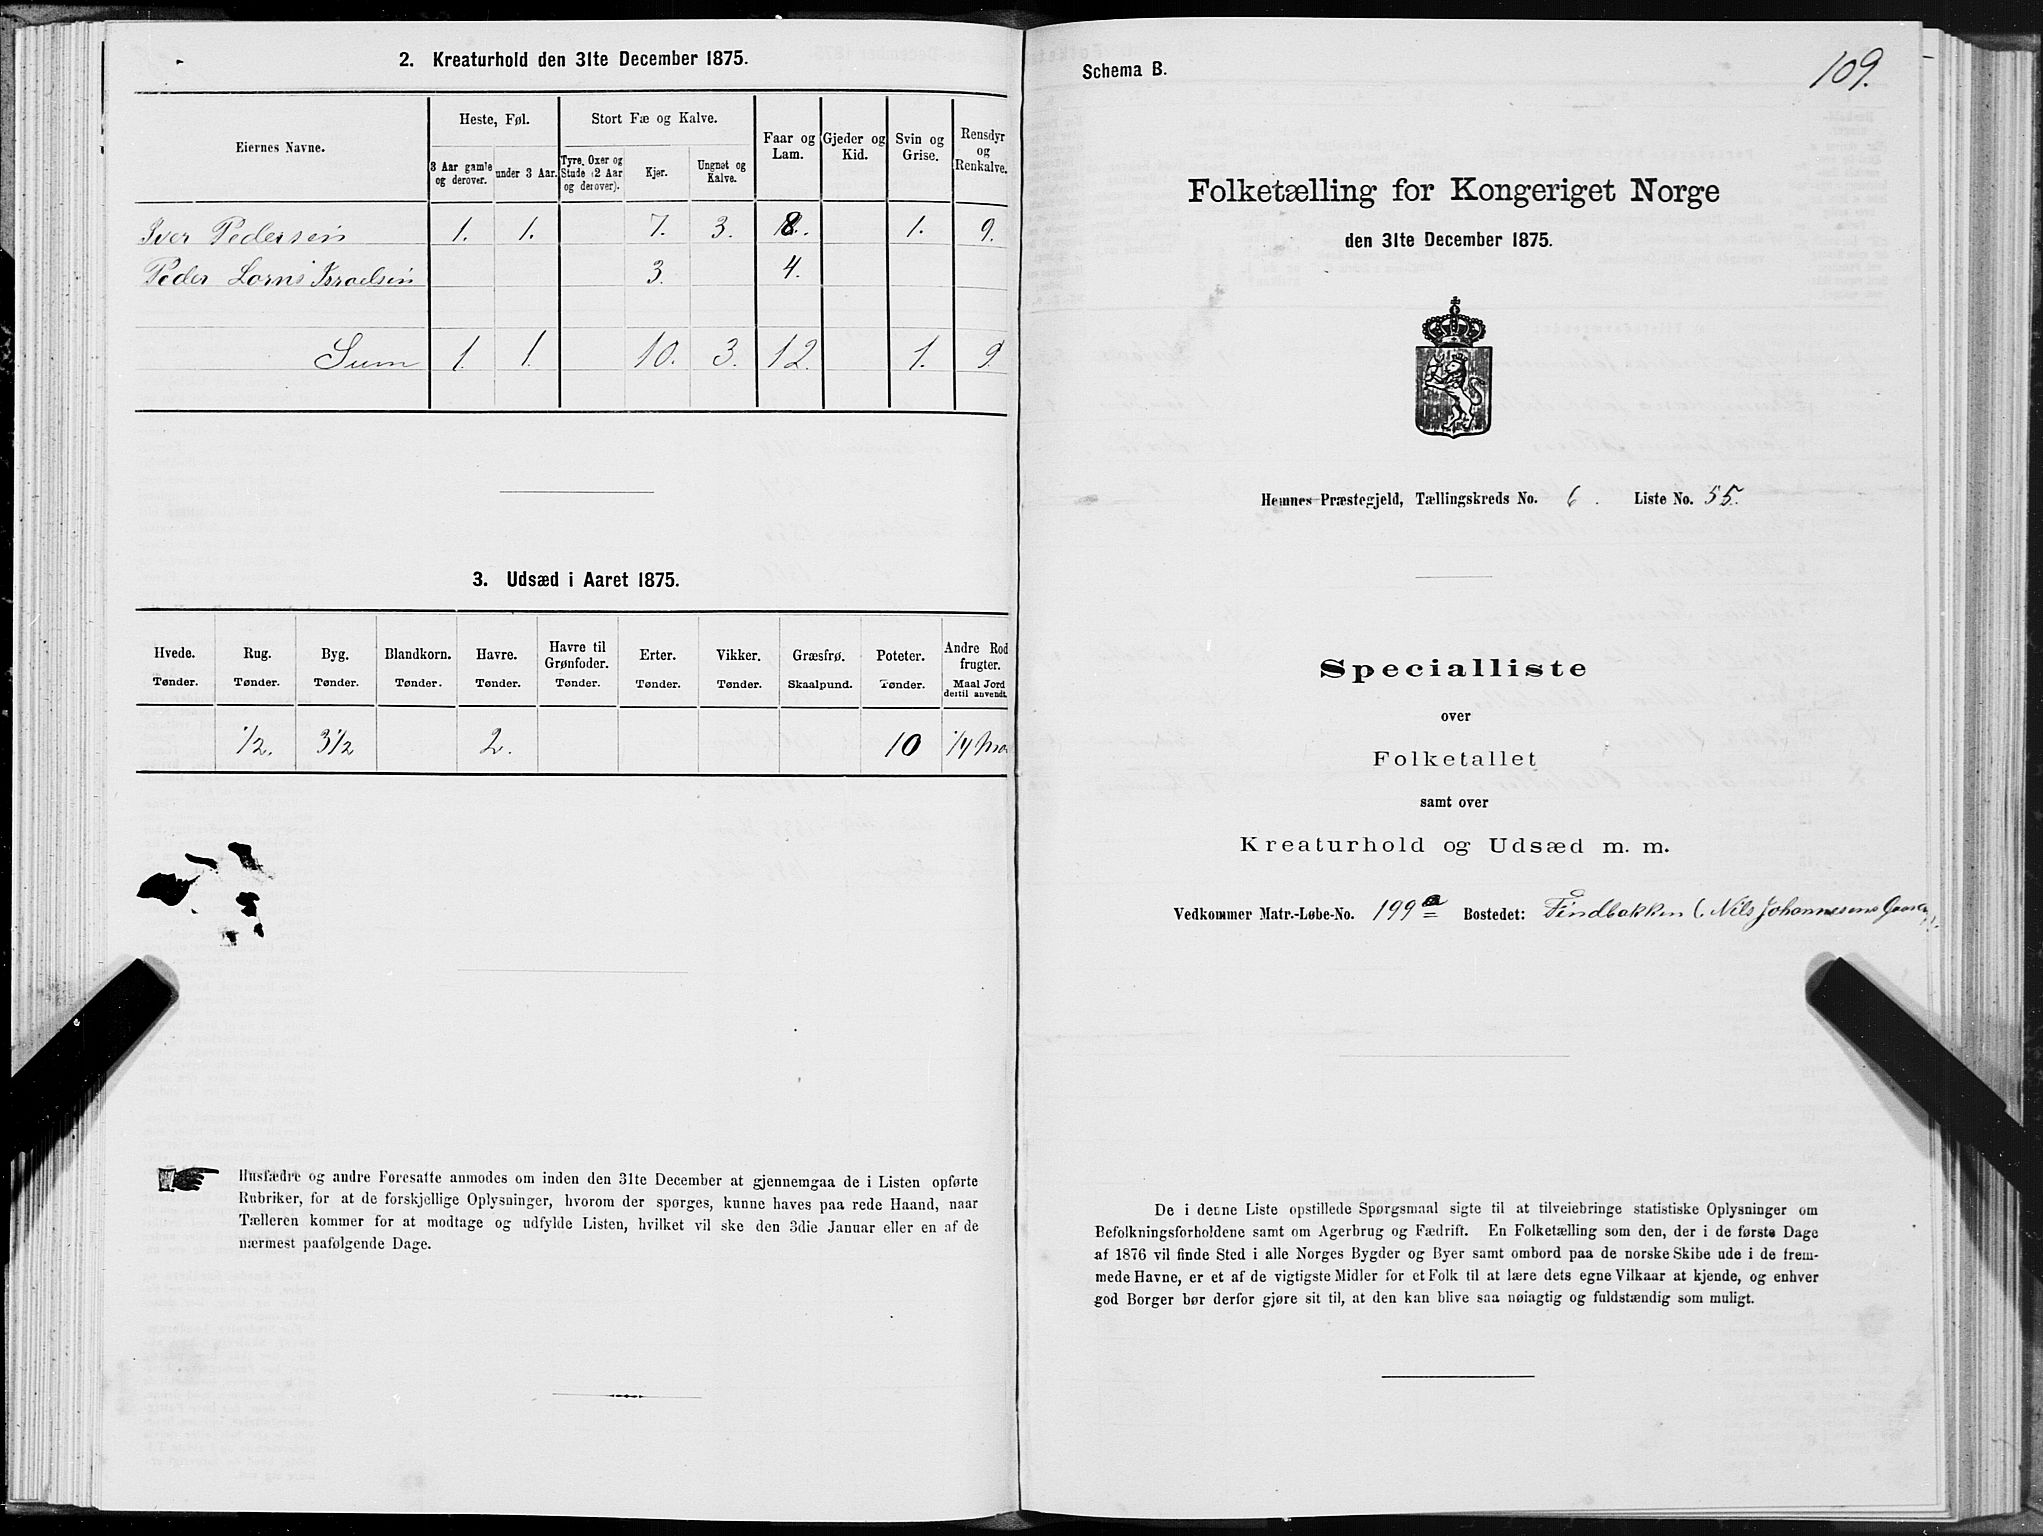 2. Kreaturhold den 31te December 1875.
Eiernes Navne.
Heste, Føl.
3 Aar gamle og derover.
under 3 Aar.
Stort Fæ og Kalve.
Tyre, Oxer og Stude (2 Aar og derover).
Kjør.
Ungnøt og Kalve.
Faar og Lam.
Gjeder og Kid.
Svin og Grise.
Rensdyr og Renkalve.
Iver Pedersen 1. 1. 7. 3. 8. 1. 9.
Peder Lorns Israelsen 3. 4.
Sum 1. 1. 10. 3. 12. 1. 9
3. Udsæd i Aaret 1875.
Hvede. Tønder.
Rug. Tønder.
Byg. Tønder.
Blandkorn. Tønder.
Havre. Tønder.
Havre til Grønfoder. Tønder.
Erter. Tønder.
Vikker. Tønder.
Græsfrø. Skaalpund.
Poteter. Tønder.
Andre Rodfrugter. Maal Jord dertil anvendt.
1/2. 3 1/2 2. 10 1/4
Husfædre og andre Foresatte anmodes om inden den 31te December at gjennemgaa de i Listen opførte
Rubriker, for at de forskjellige Oplysninger, hvorom der spørges, kunne haves paa rede Haand, naar
Tælleren kommer for at modtage og udfylde Listen, hvilket vil ske den 3die Januar eller en af de
nærmest paafølgende Dage.
109.
Schema B.
Folketælling for Kongeriget Norge
den 31te December 1875.
Hemnes Præstegjeld, Tællingskreds No. 6. Liste No. 55.
Specialliste
over
Folketallet
samt over
Kreaturhold og Udsæd m. m.
Vedkommer Matr.-Løbe-No. 199a Bostedet: Findbakken (Nils Johannesens Gaard).
De i denne Liste opstillede Spørgsmaal sigte til at tilveiebringe statistiske Oplysninger om
Befolkningsforholdene samt om Agerbrug og Fædrift. En Folketælling som den, der i de første Dage
af 1876 vil finde Sted i alle Norges Bygder og Byer samt ombord paa de norske Skibe ude i de frem-
mede Havne, er et af de vigtigste Midler for et Folk til at lære dets egne Vilkaar at kjende, og enhver
god Borger bør derfor gjøre sit til, at den kan blive saa nøiagtig og fuldstændig som muligt.